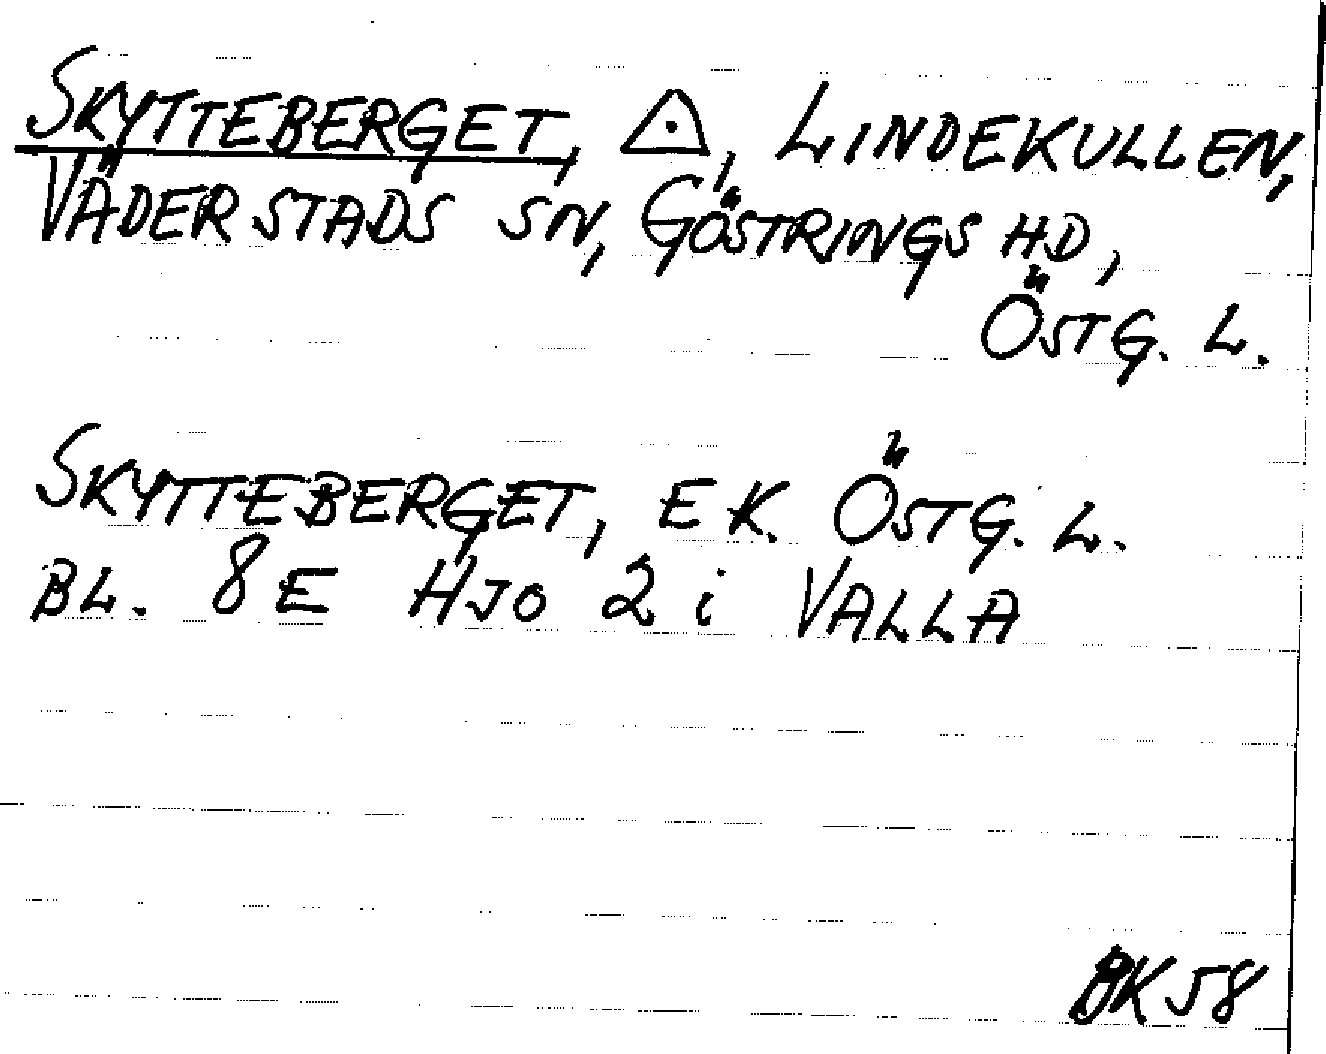 SKYTTEBERGET, △, LINDEKULLEN,
VÄDERSTADS SN, GÖSTRINGS HD,
ÖSTG. L.
SKYTTEBERGET, EK. ÖSTG. L.
BL. 8E HJO 2 i VALLA
BK58